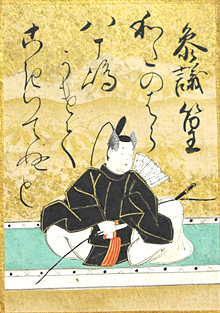 參議篁
和たのはら
八十嶋
かけて
こきいてぬと